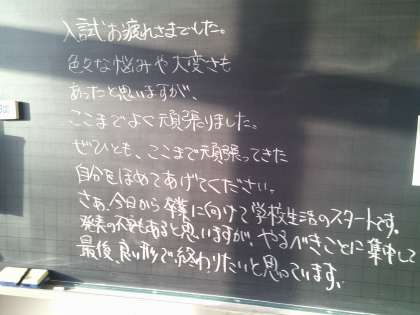 入試お疲れさまでした。
色々な悩みや大変さも
あったと思いますが、
ここまでよく頑張りました。
ぜひとも、ここまで頑張ってきた
自分をほめてあげてください。
さあ、今日から卒業に向けて学校生活のスタートです。
発表の不安もあると思いますが、やるべきことに集中して
最後、良い形で終わりたいと思っています。